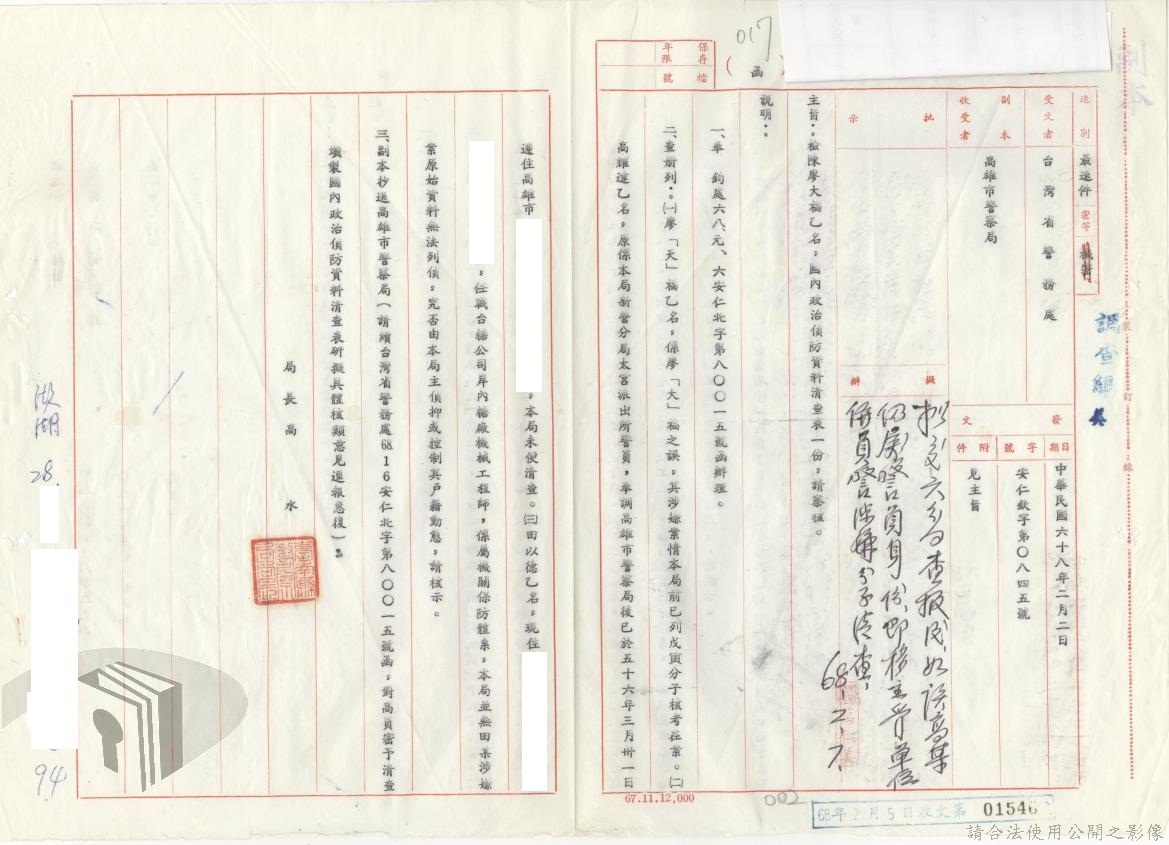 017
保存
年限
檔
號
（函
速別
最速件
密等
機密
受文者
台灣省警務處
副本
收受者
高雄市警察局
批
示
擬
辦
發
文
日期
字號
附件
中華民國六十八年二月二日
安仁欽字第〇八四五號
見主旨
調查組
裝
訂
線
主旨：檢陳廖大福乙名，國內政治偵防資料清查表一份，請察核。
說明：
一、奉　鈞處六八、元、六安仁北字第八〇〇一五號函辦理。
二、查册列：㈠廖「天」福乙名，係廖「大」福之誤，其涉嫌案情本局前已列戊寅分子核考在案。㈡
高耀達乙名，原係本局新營分局太宮派出所警員，奉調高雄市警察局後已於五十六年三月卅一日
遷住高雄市
，本局未便清查。㈢田以德乙名，現住
，任職台糖公司岸內糖廠機械工程師，係屬機關保防體系，本局並無田某涉嫌
案原始資料無法列偵，究否由本局主偵抑或控制其戶籍動態，請核示。
三、副本抄送高雄市警察局（請續台灣省警務處68.1.6安仁北字第八〇〇一五號函，對高員密予清查
填製國內政治偵防資料清查表研擬具體核類意見逕報憑後）。
局長高　水
68.2.7.
67.11.12,000
002
68年2月5日收文第 01546
28.
94
請合法使用公開之影像